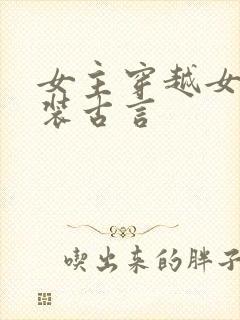 女主穿越女
装古言
喫出来的胖子